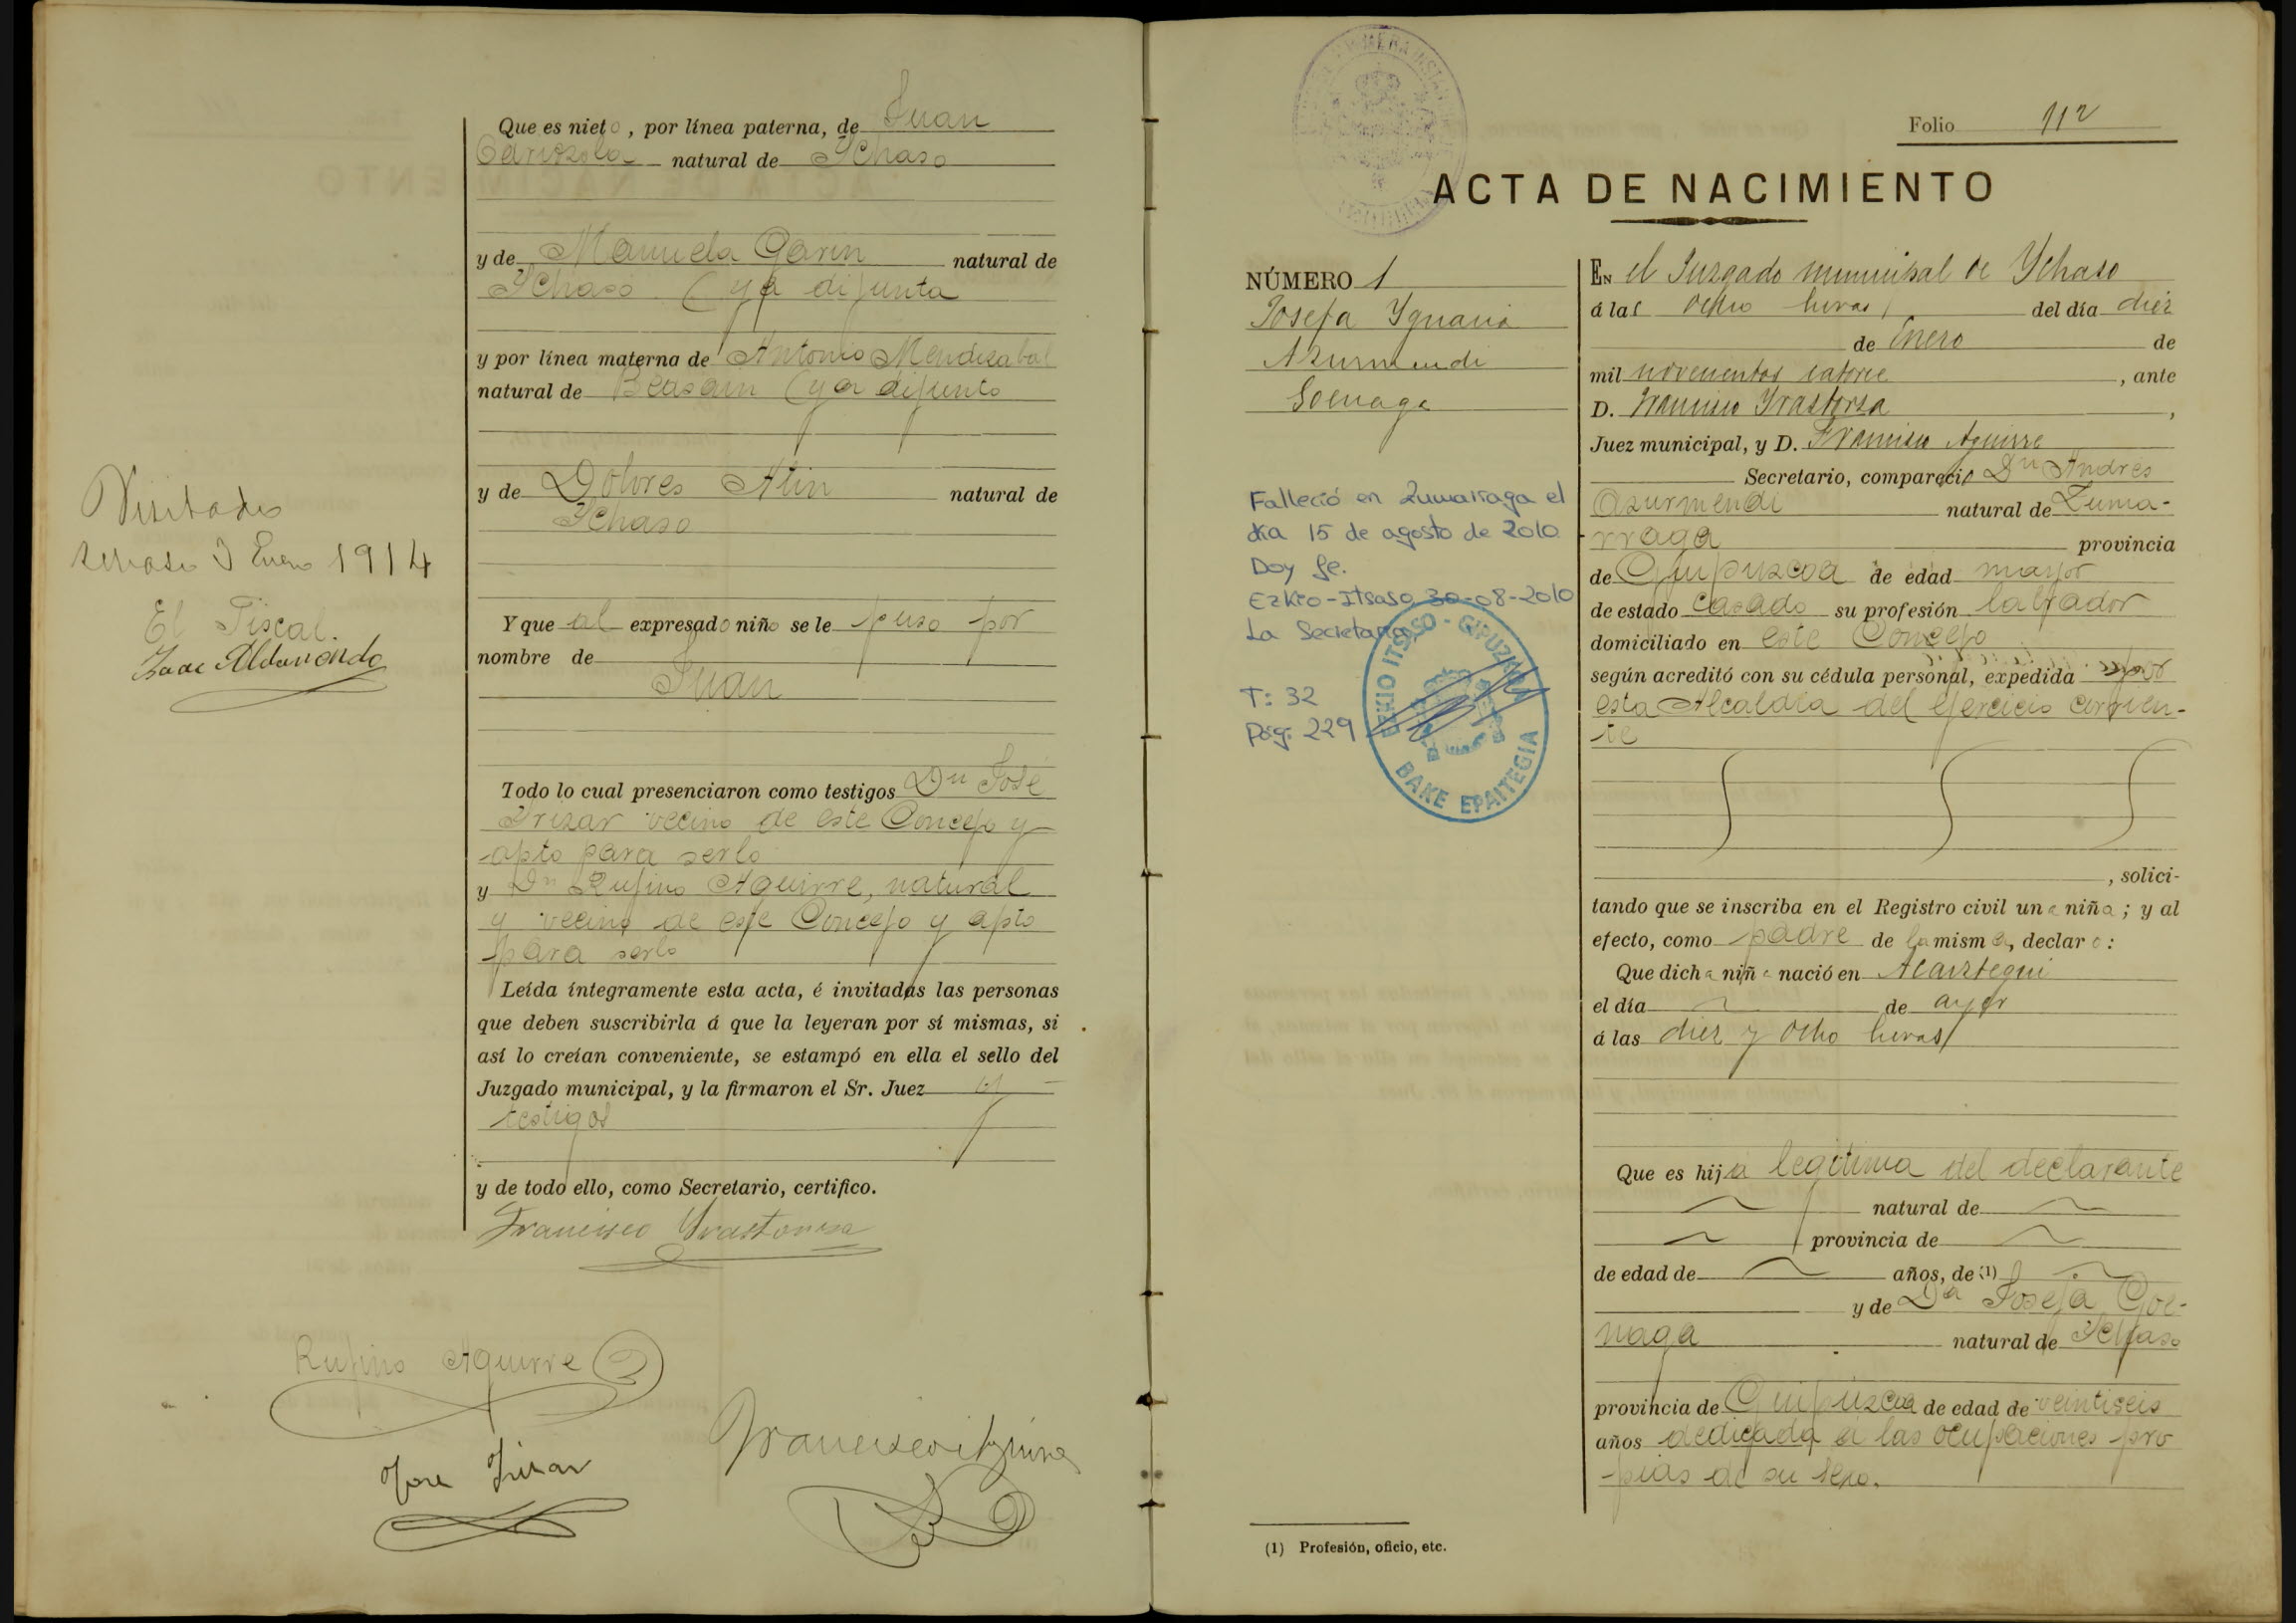 Que es nieto, por línea paterna, de Juan
natural de Ychaso
y de Manuela Garin natural de
Ychaso (ya difunta
y por línea materna de Antonio Mendizabal
natural de Beasain (ya difunto
y de Dolores Alin natural de
Ychaso
Y que al expresado niño se le puso por
nombre de
Juan
Todo lo cual presenciaron como testigos Dn José
Irizar vecino de este Concejo y
apto para serlo
y Dn Rufino Aguirre, natural
y vecino de este Concejo y apto
para serlo
Leída íntegramente esta acta, é invitadas las personas
que deben suscribirla á que la leyeran por sí mismas, si
así lo creían conveniente, se estampó en ella el sello del
Juzgado municipal, y la firmaron el Sr. Juez y
testigos
y de todo ello, como Secretario, certifico.
Francisco Yrastorza
Rufino Aguirre
Jose Irizar
Francisco Aguirre
Visitado
Ichaso 3 Enero 1914
El Fiscal.
Aldanondo
Folio 112
ACTA DE NACIMIENTO
NÚMERO 1
Josefa Ygnacia
Azurmendi
Goenaga
Falleció en Zumarraga el
día 15 de agosto de 2010
Doy fe.
Ezkio-Itsaso 30-08-2010
La Secretaria,
T: 32
Pág: 229
EZKIO ITSASO - GIPUZKOA
BAKE EPAITEGIA
En el Juzgado municipal de Ychaso
á las ocho horas del día diez
de Enero de
mil novecientos catorce, ante
D. Francisco Yrastorza,
Juez municipal, y D. Francisco Aguirre
Secretario, compareció Dn Andrés
Azurmendi natural de Zuma-
rraga provincia
de Guipuzcoa de edad mayor
de estado casado su profesión labrador
domiciliado en este Concejo
según acreditó con su cédula personal, expedida por
esta Alcaldia del ejercicio corrien-
te
, solici-
tando que se inscriba en el Registro civil una niña; y al
efecto, como padre de la misma, declaro:
Que dicha niña nació en Alcaiztegui
el día de ayer
á las diez y ocho horas
Que es hija legitima del declarante
natural de
provincia de
de edad de años, de (1)
y de Da Josefa Goe-
naga natural de Ychaso
provincia de Guipuzcoa de edad de veintiseis
años dedicada á las ocupaciones pro
pias de su sexo.
(1) Profesión, oficio, etc.